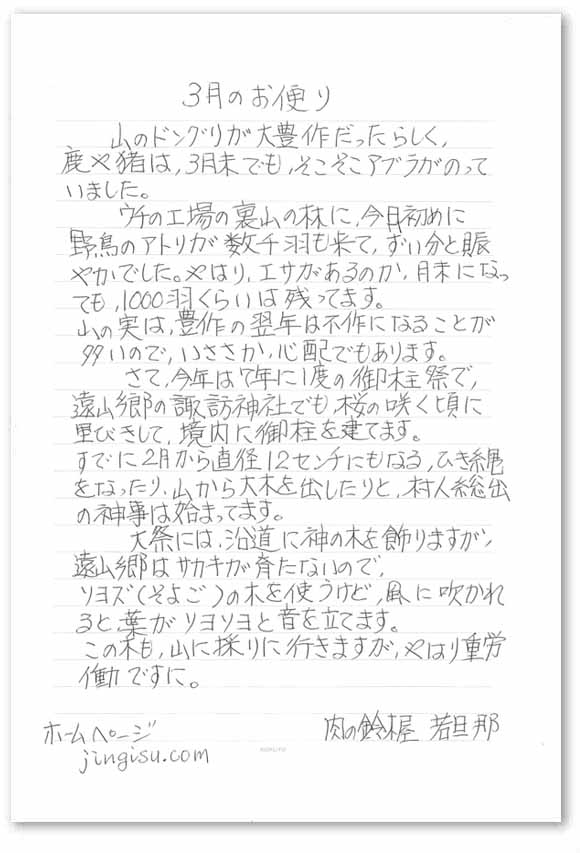 3月のお便り
山のドングリが大豊作だったらしく,
鹿や猪は,3月末でも,そこそこアブラがのって
いました。
ウチの工場の裏山の林に,今日初めに
野鳥のアトリが数千羽も来て,ずい分と賑
やかでした。やはり,エサがあるのか,月末になっ
ても,1000羽くらいは残ってます。
山の実は,豊作の翌年は不作になることが
多いので,いささか,心配でもあります。
さて,今年は7年に1度の御柱祭で,
遠山郷の諏訪神社でも,桜の咲く頃に
里びきして,境内に御柱を建てます。
すでに2月から直径12センチにもなる,ひき縄
をなったり,山から大木を出したりと,村人総出
の神事は始まってます。
大祭には,沿道に神の木を飾りますが,
遠山郷はサカキが育たないので,
ソヨズ(そよご)の木を使うけど,風に吹かれ
ると葉がソヨソヨと音を立てます。
この木も,山に採りに行きますが,やはり重労
働ですに。
肉の鈴木屋 若旦那
ホームページ
jingisu.com
KOKUYO